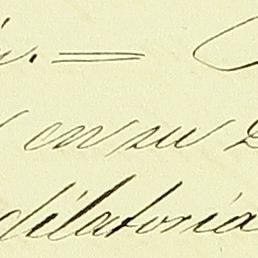 en su
dilatoria